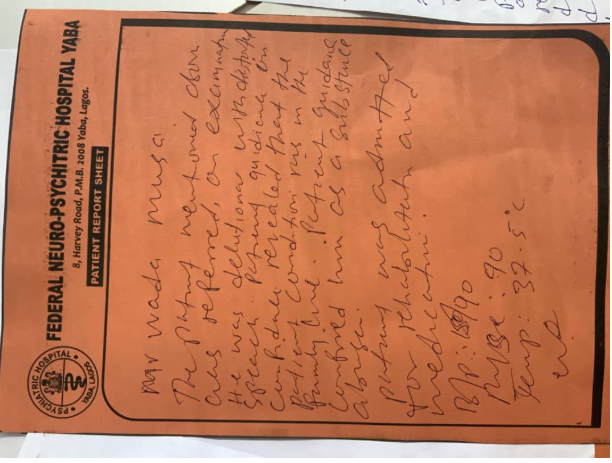 FEDERAL NEURO-PSYCHITRIC HOSPITAL YABA
8, Harvey Road, P.M.B. 2008 Yaba, Lagos.
PATIENT REPORT SHEET
PSYCHIATRIC HOSPITAL
YABA, LAGOS
Mr Wada Musa
The patient mentioned above
was referred, on examination
He was delutional with distorted
Speach. Patient guidiance in
confidence revealed that the
Patient condition runs in the
family line. Patient guidance
confirmed him as a substance
abuse.
Patient was admitted
for rehabilitation and
medication.
B/P: /90
Pulse: 90
Temp: 37.5°C